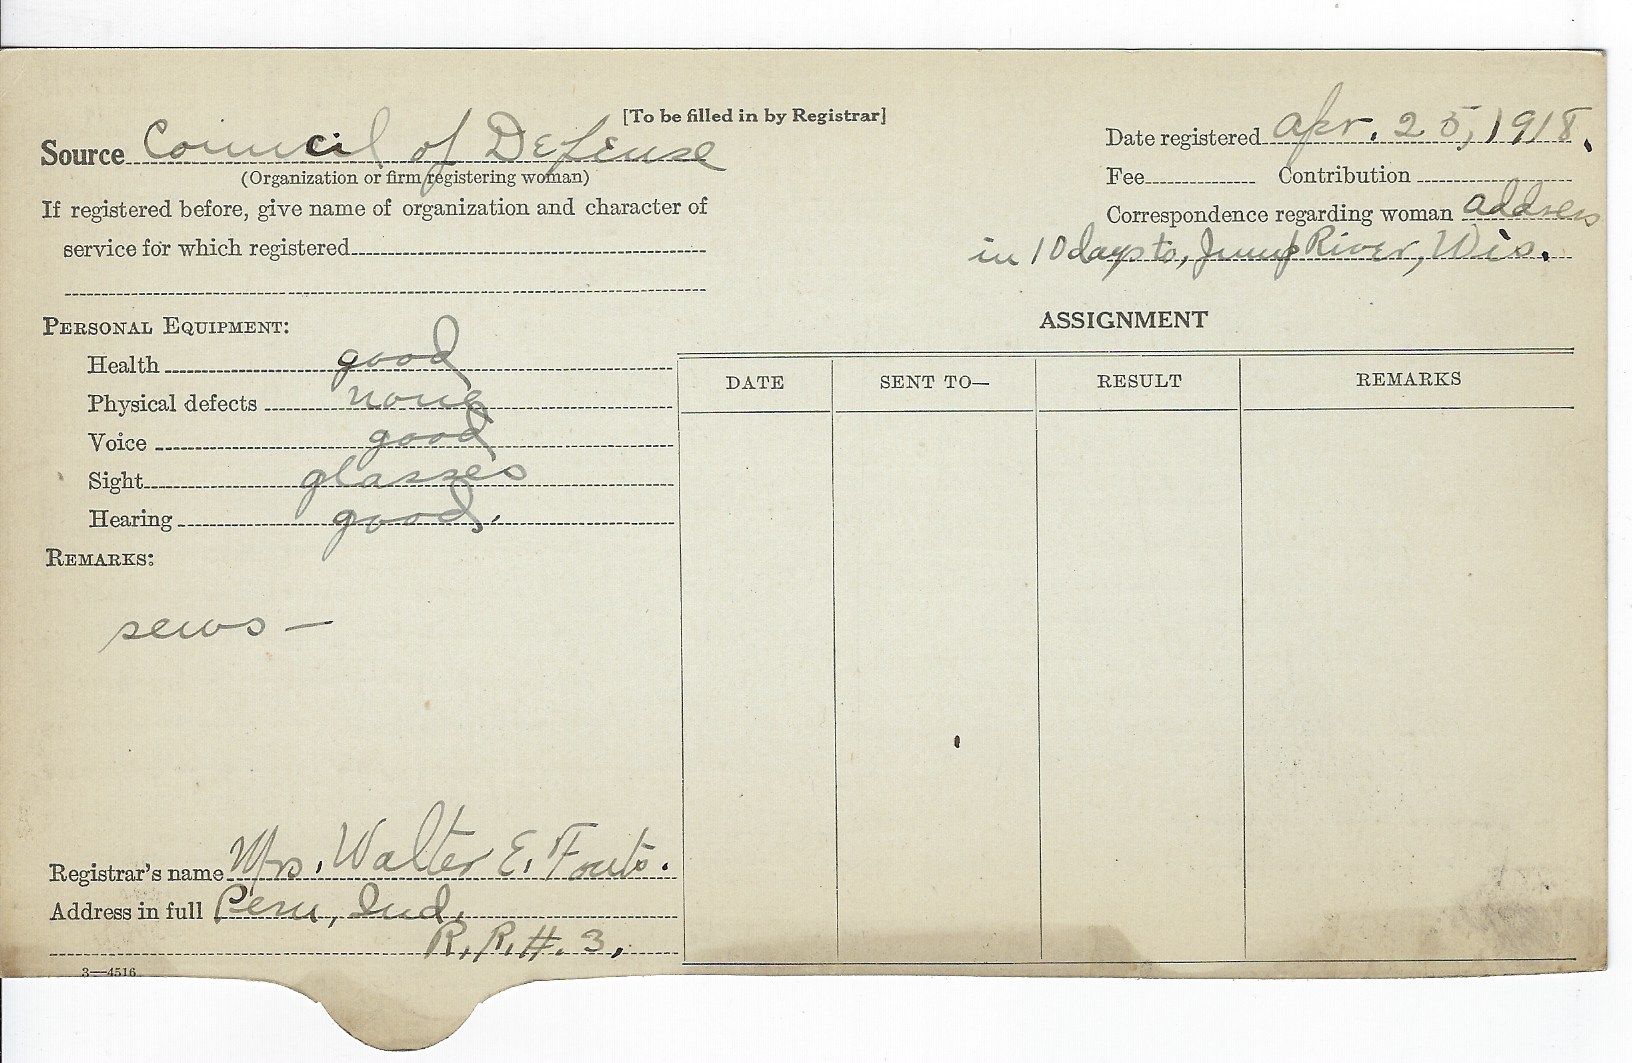 [To be filled in by Registrar]
Source Council of Defense
(Organization or firm registering woman)
If registered before, give name of organization and character of
service for which registered
Date registered Apr. 25, 1918.
Fee Contribution
Correspondence regarding woman address
in 10 days to, Jump River, Wis.
PERSONAL EQUIPMENT:
Health good
Physical defects none
Voice good
Sight glasses
Hearing good.
REMARKS:
sews —
ASSIGNMENT
DATE SENT TO— RESULT REMARKS
Registrar's name Mrs. Walter E. Fouts.
Address in full Peru, Ind.
R. R. #. 3.
3—4516